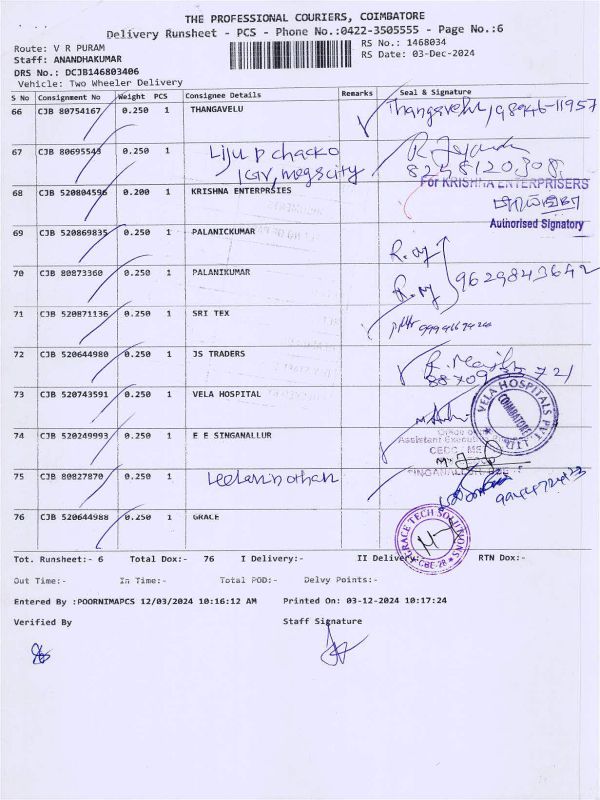 THE PROFESSIONAL COURIERS, COIMBATORE
Delivery Runsheet - PCS - Phone No.:0422-3505555 - Page No.:6
Route: V R PURAM
RS No.: 1468034
Staff: ANANDHAKUMAR
RS Date: 03-Dec-2024
DRS No.: DCJB146803406
Vehicle: Two Wheeler Delivery
S No Consignment No Weight PCS Consignee Details Remarks Seal & Signature
66 CJB 80754167 0.250 1 THANGAVELU Thangavelu 98946-11957
67 CJB 80695543 0.250 1 Liju P chacko
IGV, megscity
8248120308
68 CJB 520804596 0.200 1 KRISHNA ENTERPRSIES For KRISHNA ENTERPRISERS
Authorised Signatory
69 CJB 520869835 0.250 1 PALANICKUMAR
70 CJB 80873360 0.250 1 PALANIKUMAR 9629843642
71 CJB 520871136 0.250 1 SRI TEX
72 CJB 520644980 0.250 1 JS TRADERS
73 CJB 520743591 0.250 1 VELA HOSPITAL VELA HOSPITALS PVT. LTD. COIMBATORE
74 CJB 520249993 0.250 1 E E SINGANALLUR
75 CJB 80827870 0.250 1
76 CJB 520644988 0.250 1 GRACE GRACE TECH SOLUTIONS CBE-28
Tot. Runsheet:- 6 Total Dox:- 76 I Delivery:- II Delivery:- RTN Dox:-
Out Time:- In Time:- Total POD:- Delvy Points:-
Entered By :POORNIMAPCS 12/03/2024 10:16:12 AM Printed On: 03-12-2024 10:17:24
Verified By Staff Signature